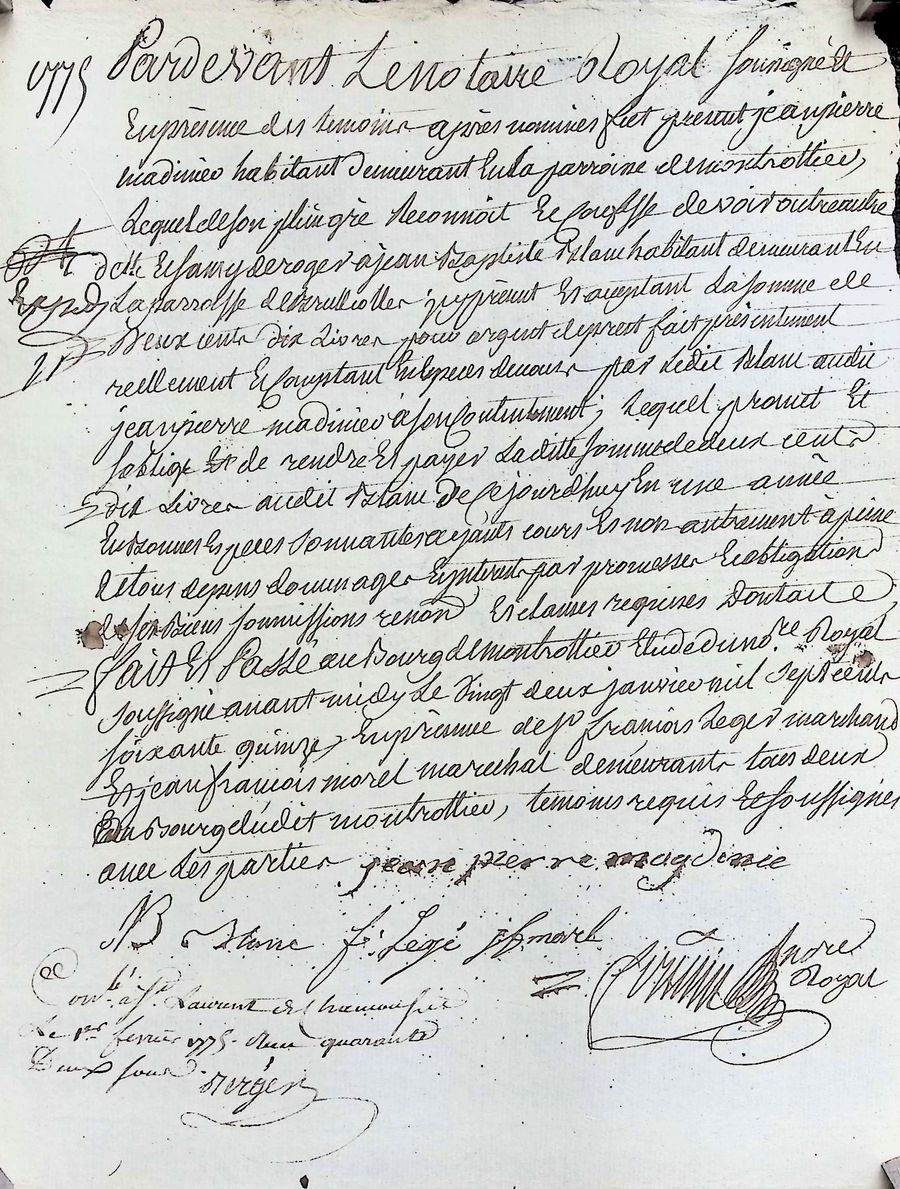 1775 Pardevant Le notaire Royal sousigné Et
En présence des temoins après nommés fut présent jean pierre
madinier habitant demeurant En la parroisse de montrottier,
Lequel de son plein gré Reconnoit Et Confesse devoir outre autre
dette Et sans y deroger à jean Baptiste Blanc habitant demeurant En
La parroisse de Brullioles ycy présent Et aceptant La somme de
Deux cents dix Livres pour argent de prest fait présentement
reellement Et Comptant En Especes de cours par Ledit Blanc audit
jean pierre madinier à son Contentement; Lequel promet Et
s'oblige de rendre Et payer Laditte somme de deux cents
dix Livres audit Blanc De Ce jourdhuy En une année
En Bonnes Especes sonnantes ayants cours Et non autrement à peine
de tous depens dommages Et par promesses Et obligation
de ses Biens soumissions renon Et clauses requises Dont acte
fait Et Passé au Bourg de montrottier Etude du no.re Royal
soussigné avant midy Le Vingt deux janvier mil sept cents
soixante quinze, En présence de sr françois Leger marchand
Et jean françois morel marechal demeurants tous deux
Du Bourg dudit montrottier, temoins requis Et soussignés
avec Les parties jean pierre magdinie
JB Blanc f. Legé jf morel
nore Royal
Con.lé à St Laurent de Chamousset
Le 1er fevrier 1775. Reçu quarante
Deux sous Berger